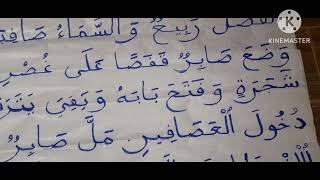 فَصْلُ رَبِيعٍ وَالسَّمَاءُ صَافِيَة
وَضَعَ صَابِرٌ قَفَصًا عَلَى غُصْنِ
شَجَرَةٍ وَفَتَحَ بَابَهُ وَبَقِيَ يَنْتَ
دُخُولَ الْعَصَافِيرِ مَلَّ صَابِرٌ
KINEMASTER